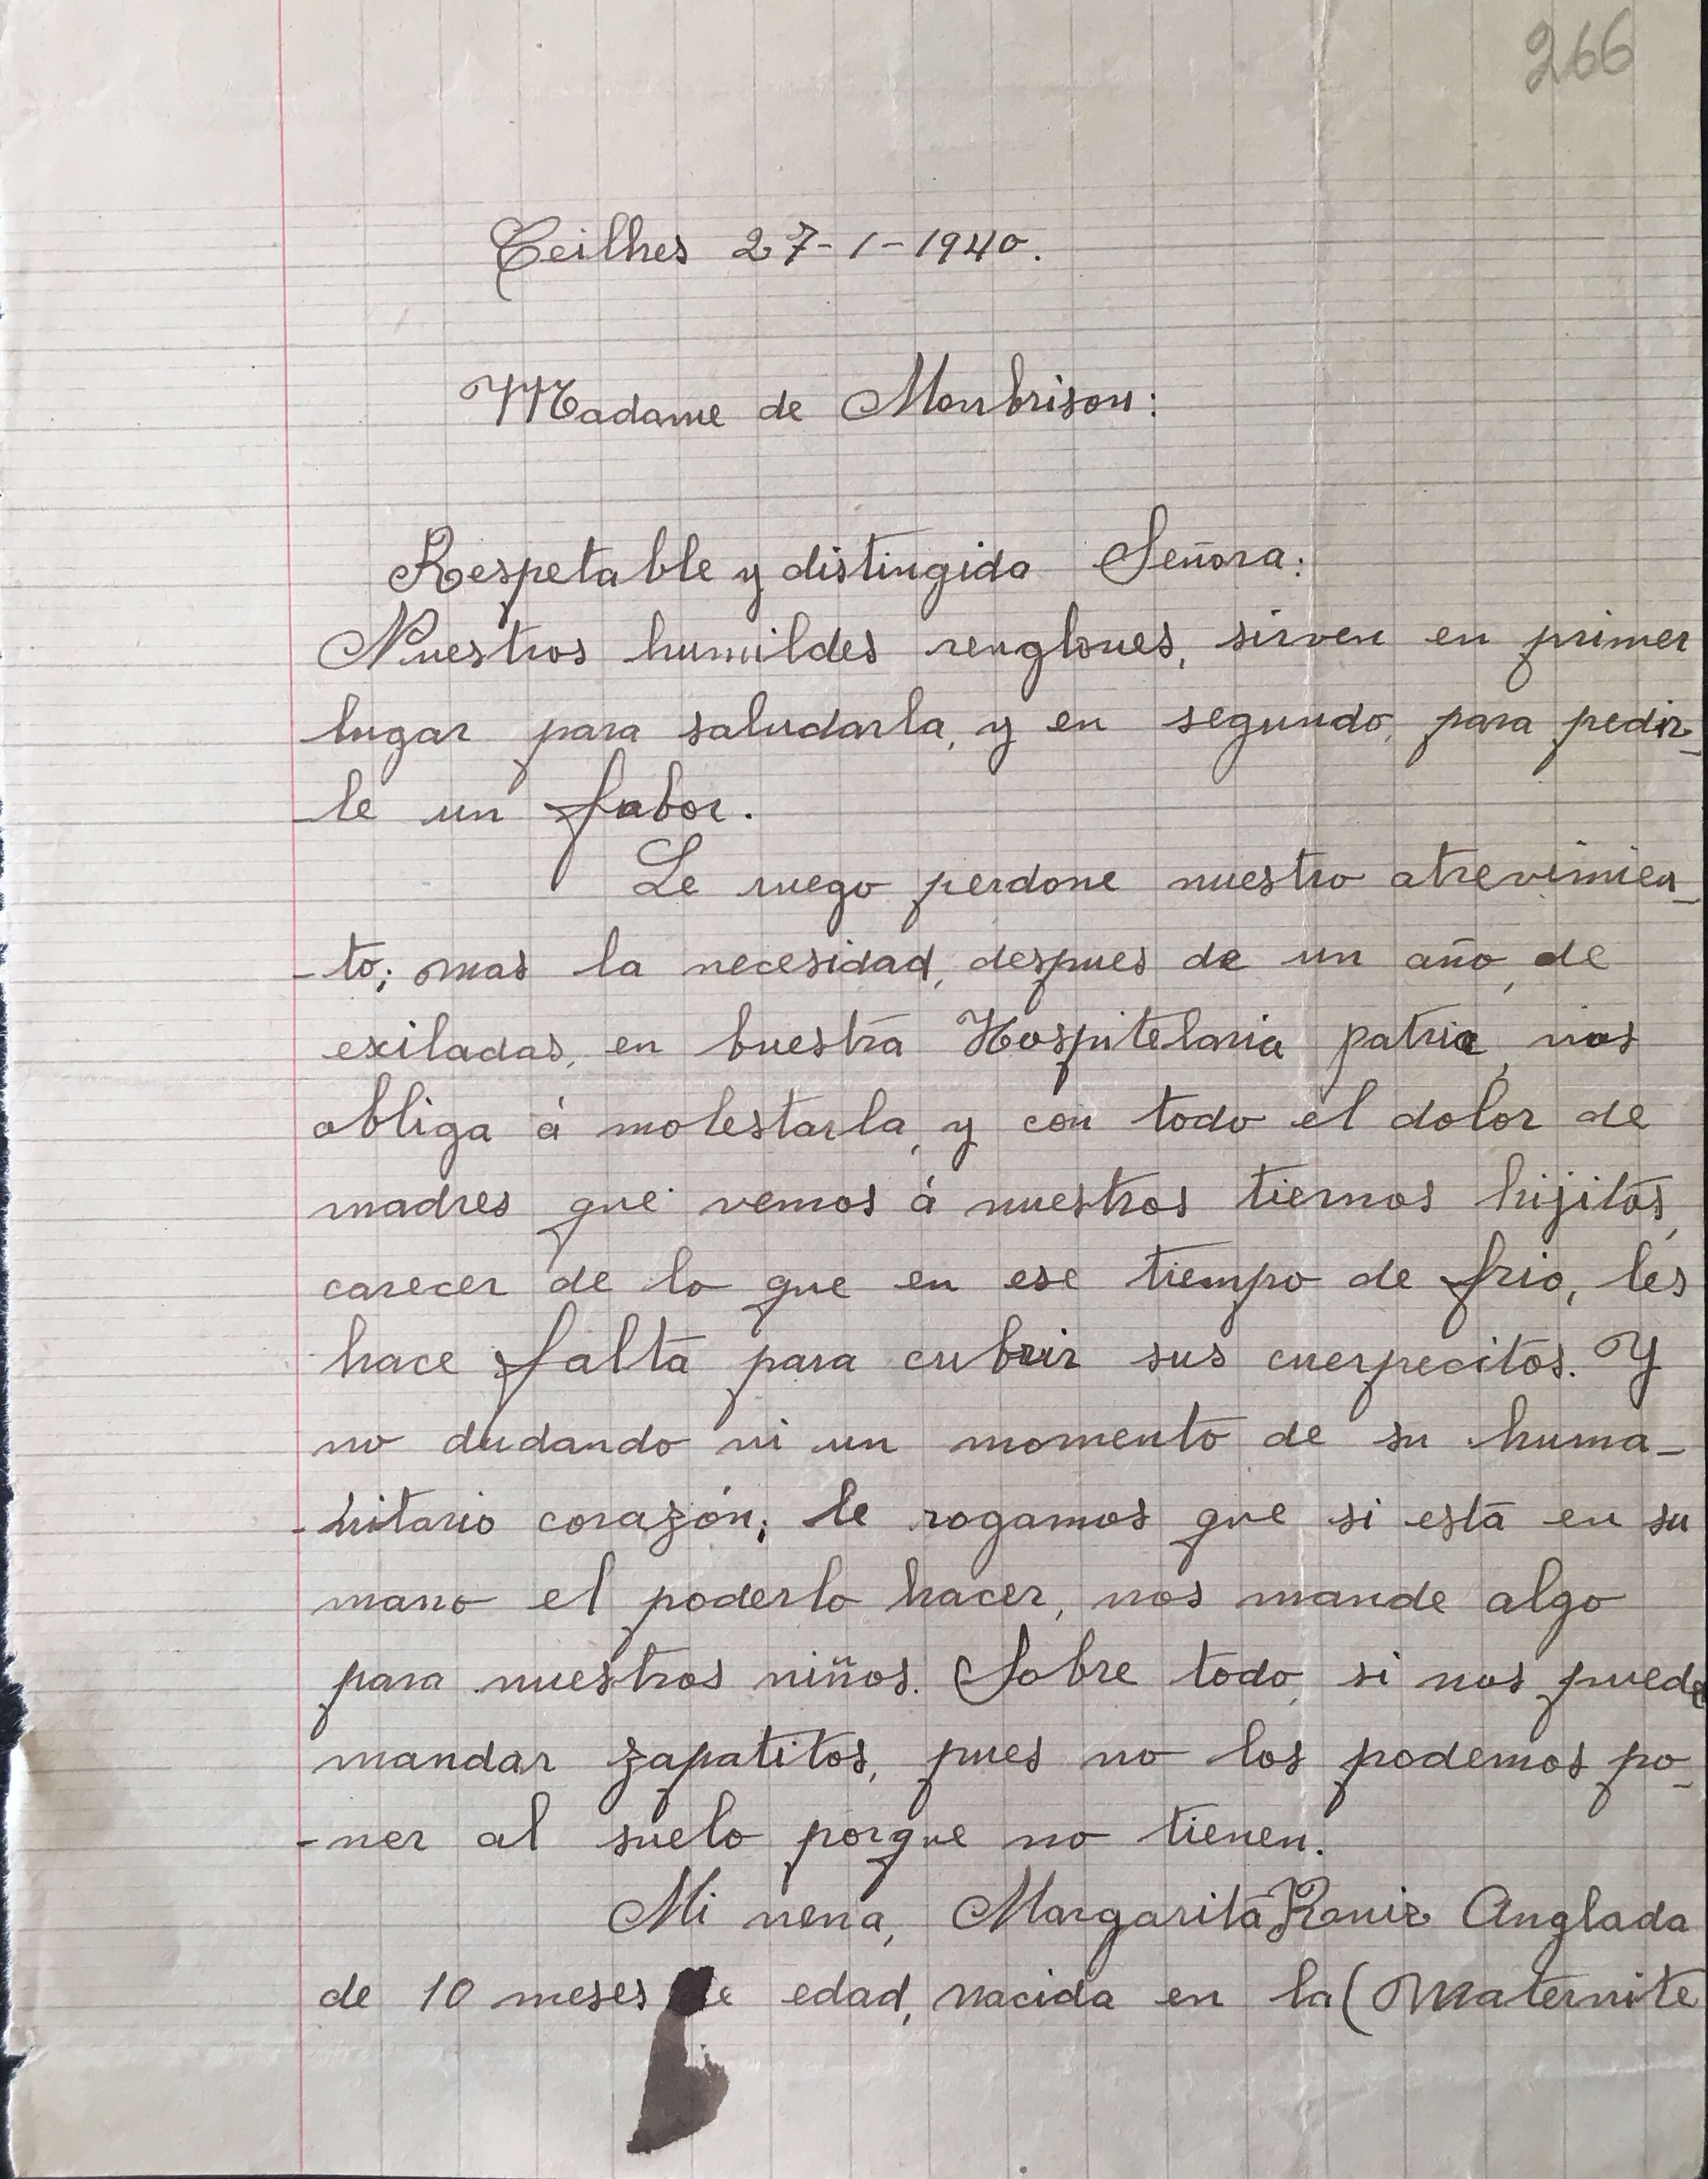 266
Ceilhes 27-1-1940.
Madame de Monbrison:
Respetable y distingida Señora:
Nuestros humildes renglones, sirven en primer
lugar para saludarla, y en segundo, para pedir-
-le un fabor.
Le ruego perdone nuestro atrevimien-
-to; mas la necesidad, despues de un año, de
exiladas, en buestra Hospitelaria patria, nos
obliga á molestarla, y con todo el dolor de
madres que vemos á nuestros tiernos hijitos,
carecer de lo que en ese tiempo de frio, les
hace falta para cubrir sus cuerpecitos. Y
no dudando ni un momento de su huma-
-nitario corazón; le rogamos que si está en su
mano el poderlo hacer, nos mande algo
para nuestros niños. Sobre todo, si nos puede
mandar zapatitos, pues no los podemos po-
-ner al suelo porque no tienen.
Mi nena, Margarita Anglada
de 10 meses de edad, nacida en la (Maternite